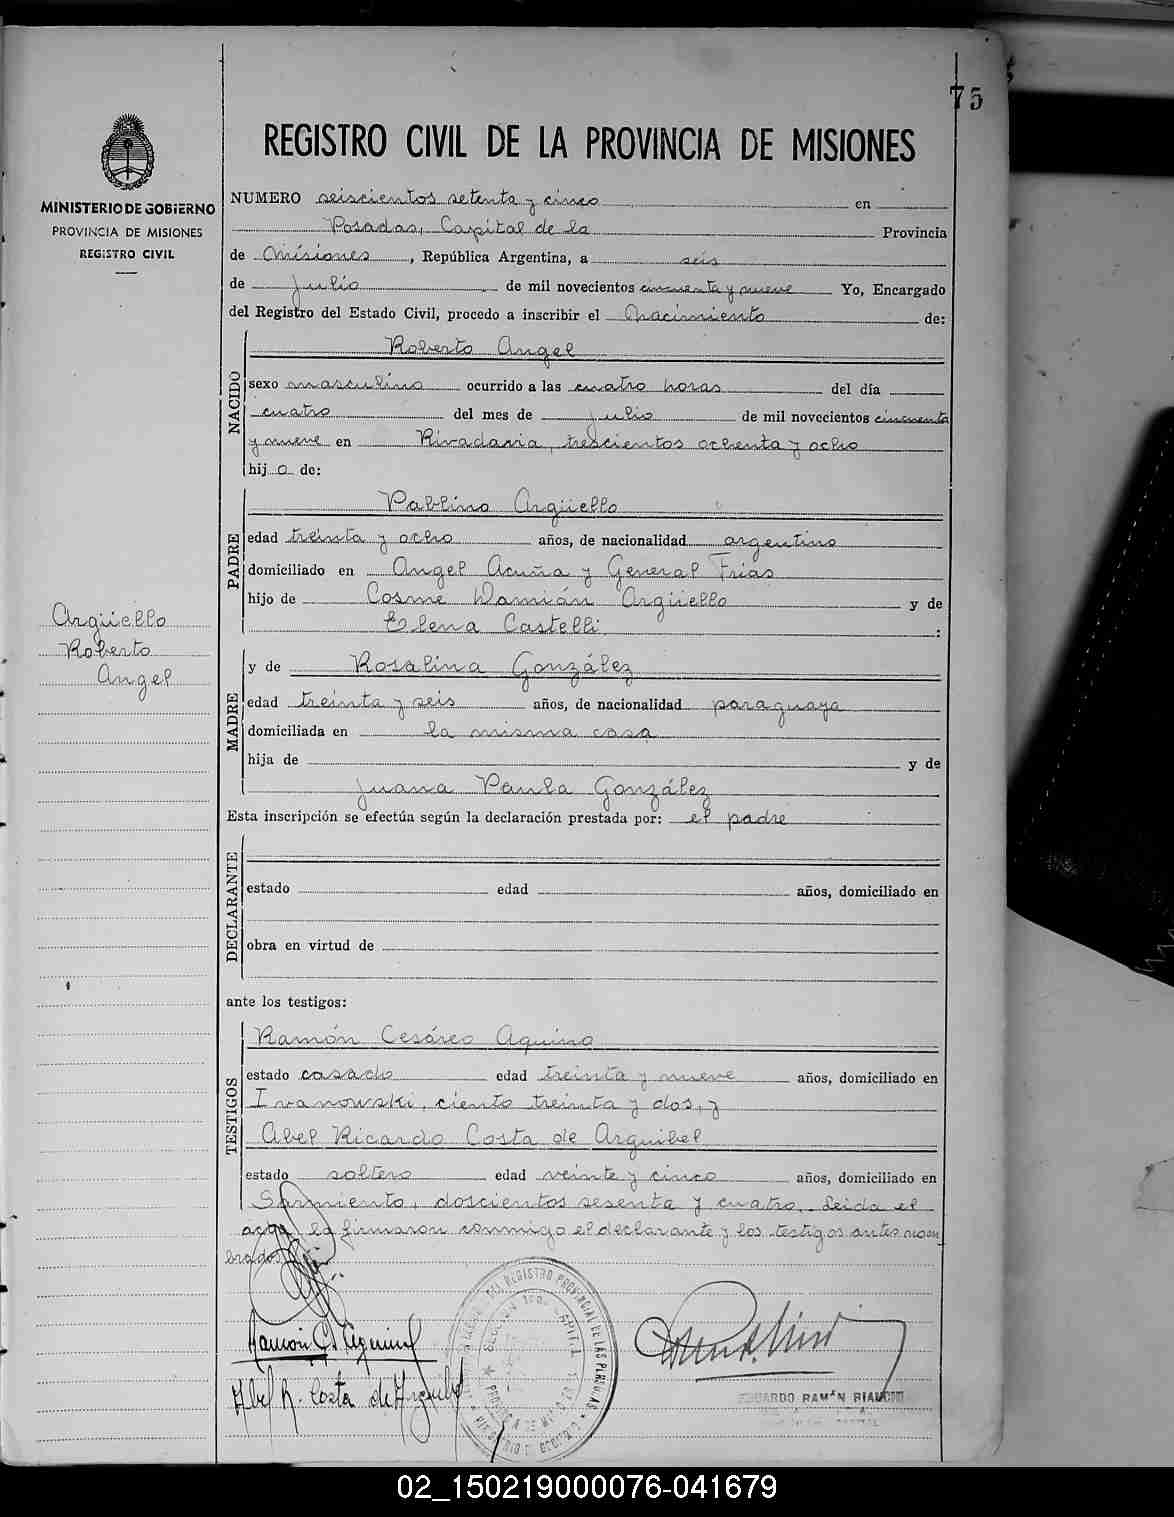 75
REGISTRO CIVIL DE LA PROVINCIA DE MISIONES
MINISTERIO DE GOBIERNO
PROVINCIA DE MISIONES
REGISTRO CIVIL
NUMERO seiscientos setenta y cinco en
Posadas, Capital de la Provincia
de Misiones, República Argentina, a seis
de Julio de mil novecientos cincuenta y nueve Yo, Encargado
del Registro del Estado Civil, procedo a inscribir el Nacimiento de:
NACIDO
Roberto Angel
sexo masculino ocurrido a las cuatro horas del día
cuatro del mes de julio de mil novecientos cincuenta
y nueve en Rivadavia, trescientos ochenta y ocho
hijo de:
PADRE
Pablino Argüello
edad treinta y ocho años, de nacionalidad argentino
domiciliado en Angel Acuña y General Frias
hijo de Cosme Damián Argüello y de
Elena Castelli:
Argüello
Roberto
Angel
MADRE
y de Rosalina González
edad treinta y seis años, de nacionalidad paraguaya
domiciliada en la misma casa
hija de y de
Juana Paula González
Esta inscripción se efectúa según la declaración prestada por: el padre
DECLARANTE
estado edad años, domiciliado en
obra en virtud de
ante los testigos:
TESTIGOS
Ramón Cesáreo Aquino
estado casado edad treinta y nueve años, domiciliado en
Ivanowski, ciento treinta y dos, y
Abel Ricardo Costa de Arguibel
estado soltero edad veinte y cinco años, domiciliado en
Sarmiento, doscientos sesenta y cuatro. Leida el
acta, la firmaron conmigo el declarante y los testigos antes nom
brados
Ramón C. Aquino
Abel R. Costa de Arguibel
DEL REGISTRO PROVINCIAL DE LAS PERSONAS
EDUARDO RAMÓN
02_150219000076-041679